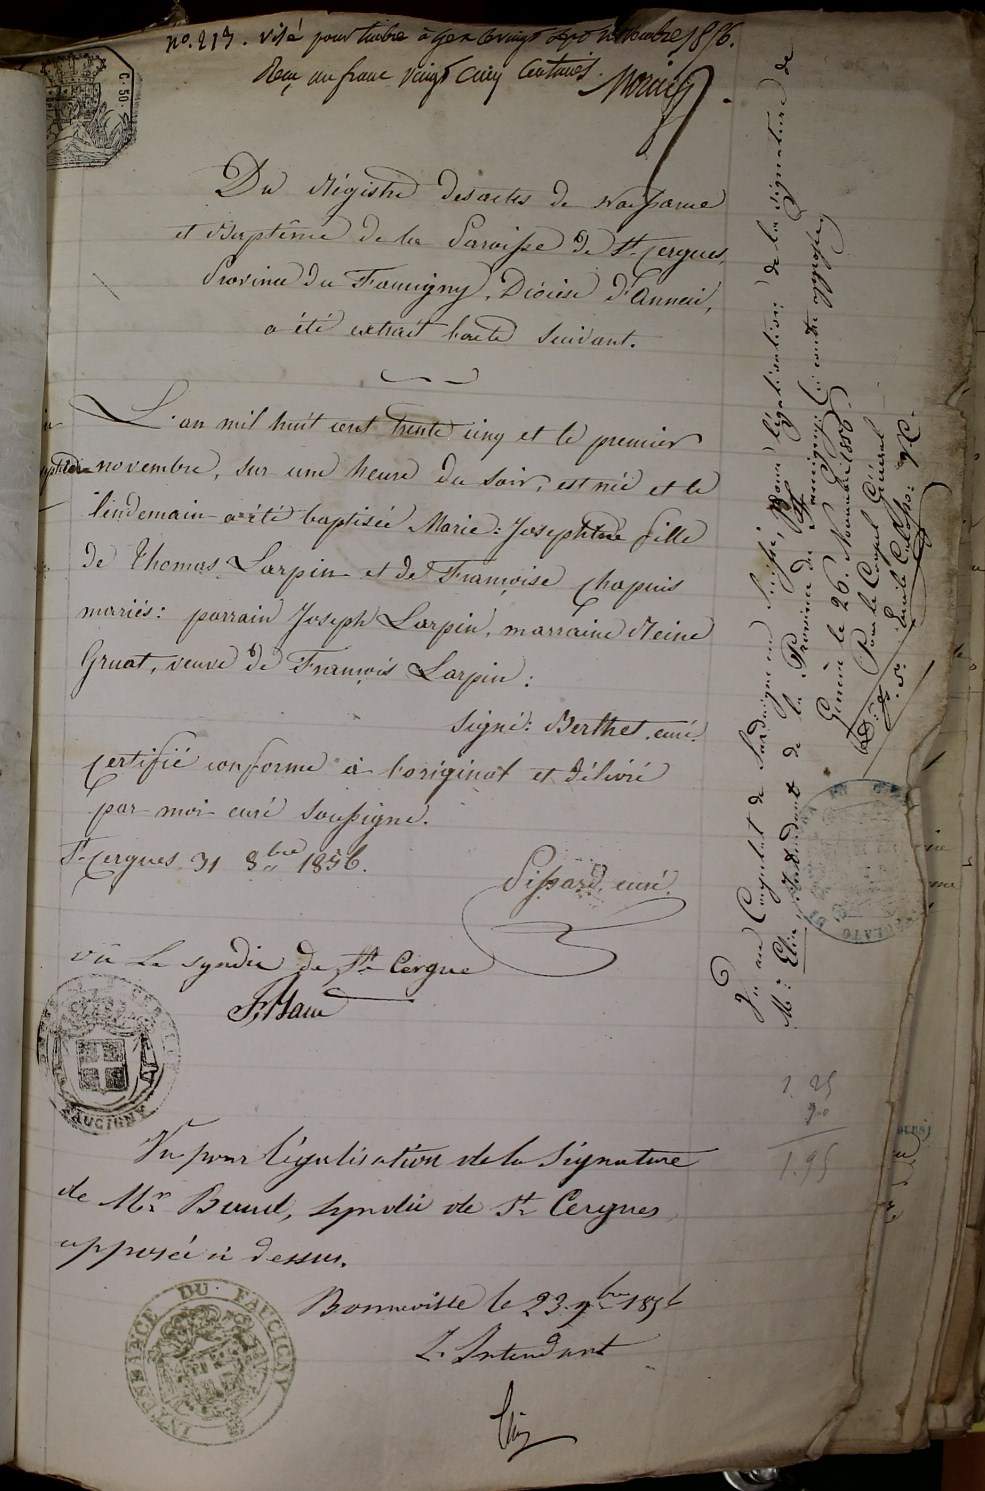 no. 213. visé pour timbre à Gex le vingt sept novembre 1856.
Reçu un franc vingt cinq centimes.
C. 50.
Du Régistre des actes de Naissance
et Baptême de la Paroisse de St. Cergues,
Province du Faucigny, Diocèse d'Annecy,
a été extrait l'acte suivant.
L'an mil huit cent trente cinq et le premier
novembre, sur une heure du soir, est née et le
lendemain a été baptisée Marie: Josephte fille
de Thomas Larpin et de Françoise Chapuis
mariés: parrain Joseph Larpin, marraine Reine
Gruat, veuve de François Larpin:
signé: Berthet, curé.
Certifié conforme à l'original et délivré
par moi curé soussigné.
St. Cergues 31 8bre 1856.
Pissard, curé.
vû Le syndic de St. Cergue
FAUCIGNY
Vu pour légalisation de la signature
de Mr. Baud, syndic de St. Cergues
apposée ci dessus.
Bonneville le 23 9bre 1856
L'Intendant
INTENDANCE DU FAUCIGNY
Vu au Consulat de Sardaigne en Suisse, pour légalisation de la signature de
Mr. Elia, Intendant de la Province du Faucigny, ci contre apposée
Genève le 26 Novembre 1856.
Pour le Consul Général
1. 25
70
1.95